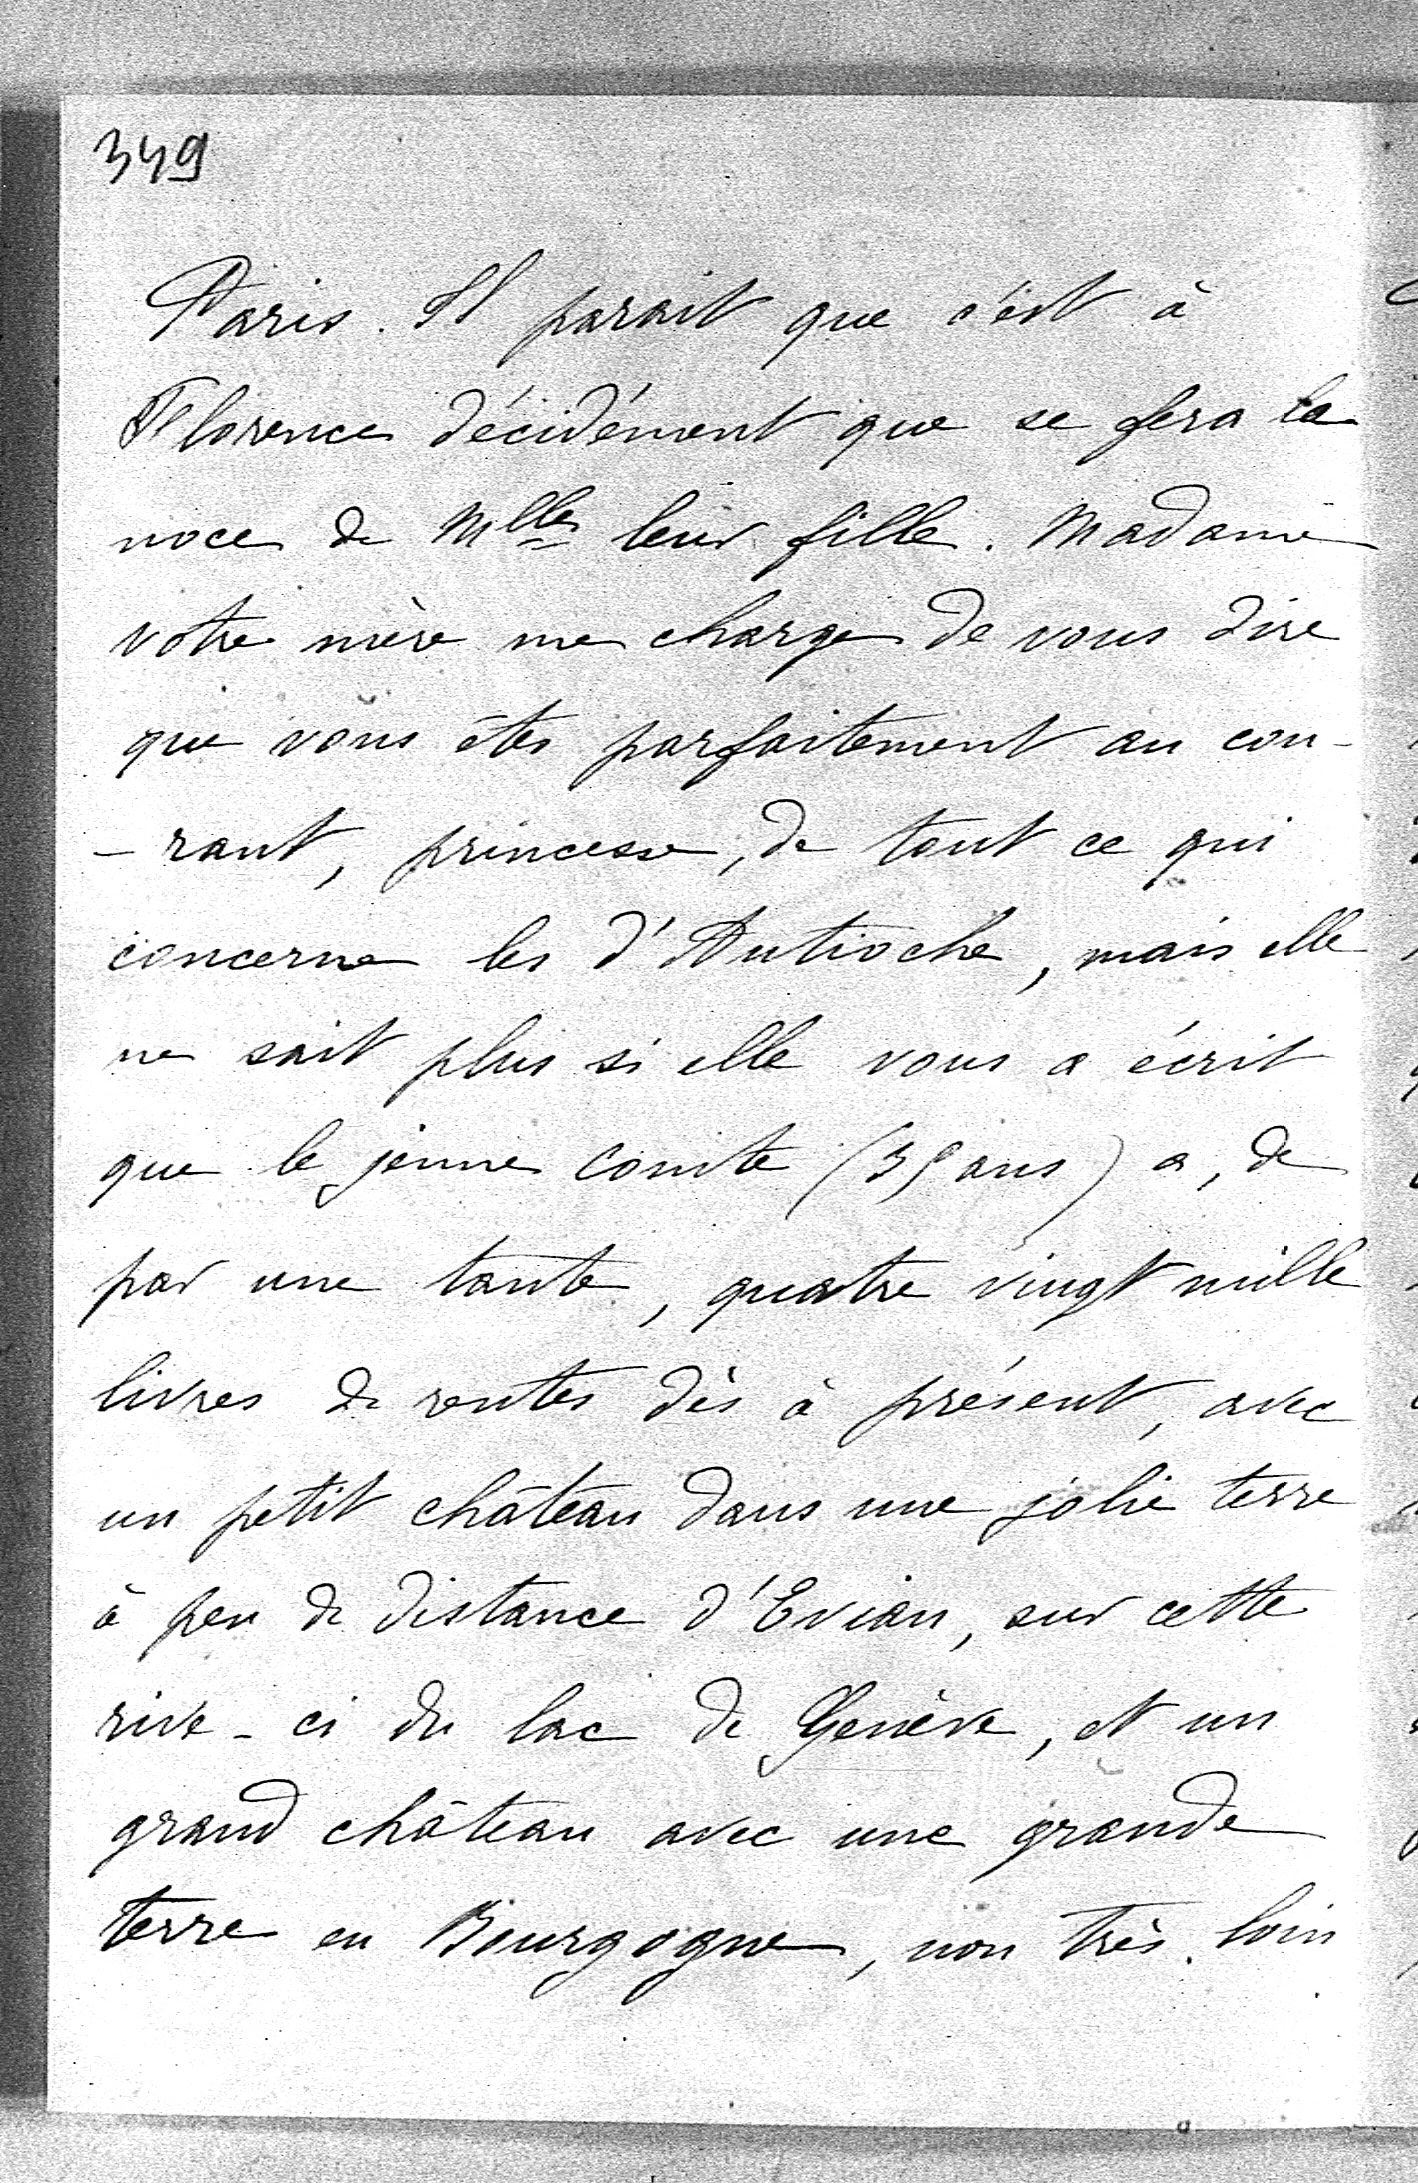 349
Paris. Il parait que c'est à
Florence décidément que se fera la
noce de Mlle leur fille. Madame
votre mère me charge de vous dire
que vous êtes parfaitement au cou-
-rant, princesse, de tout ce qui
concerne les d'Antioche, mais elle
ne sait plus si elle vous a écrit
que le jeune comte (35 ans) a, de
par une tante, quatre vingt mille
livres de rentes dès à présent, avec
un petit château dans une jolie terre
à peu de distance d'Evian, sur cette
rive-ci du lac de Genève, et un
grand château avec une grande
terre en Bourgogne, non très loin